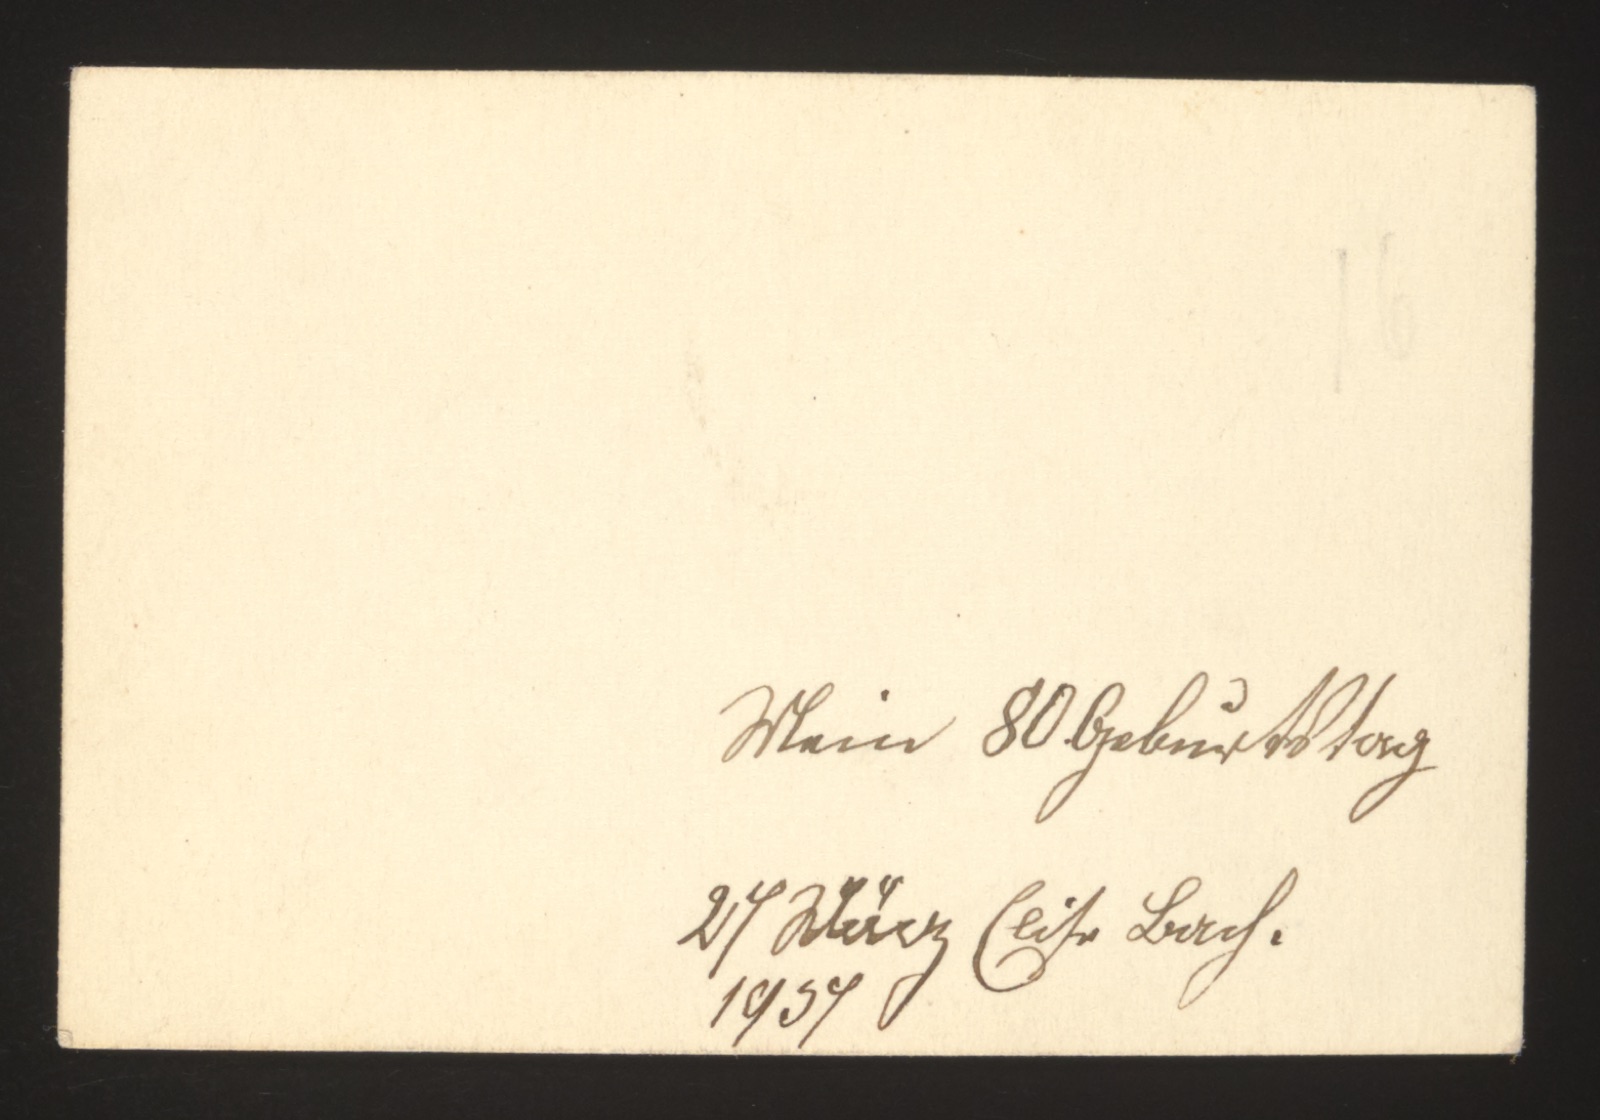 16
Mein 80. Geburtstag
27 März Elise Bach.
1937